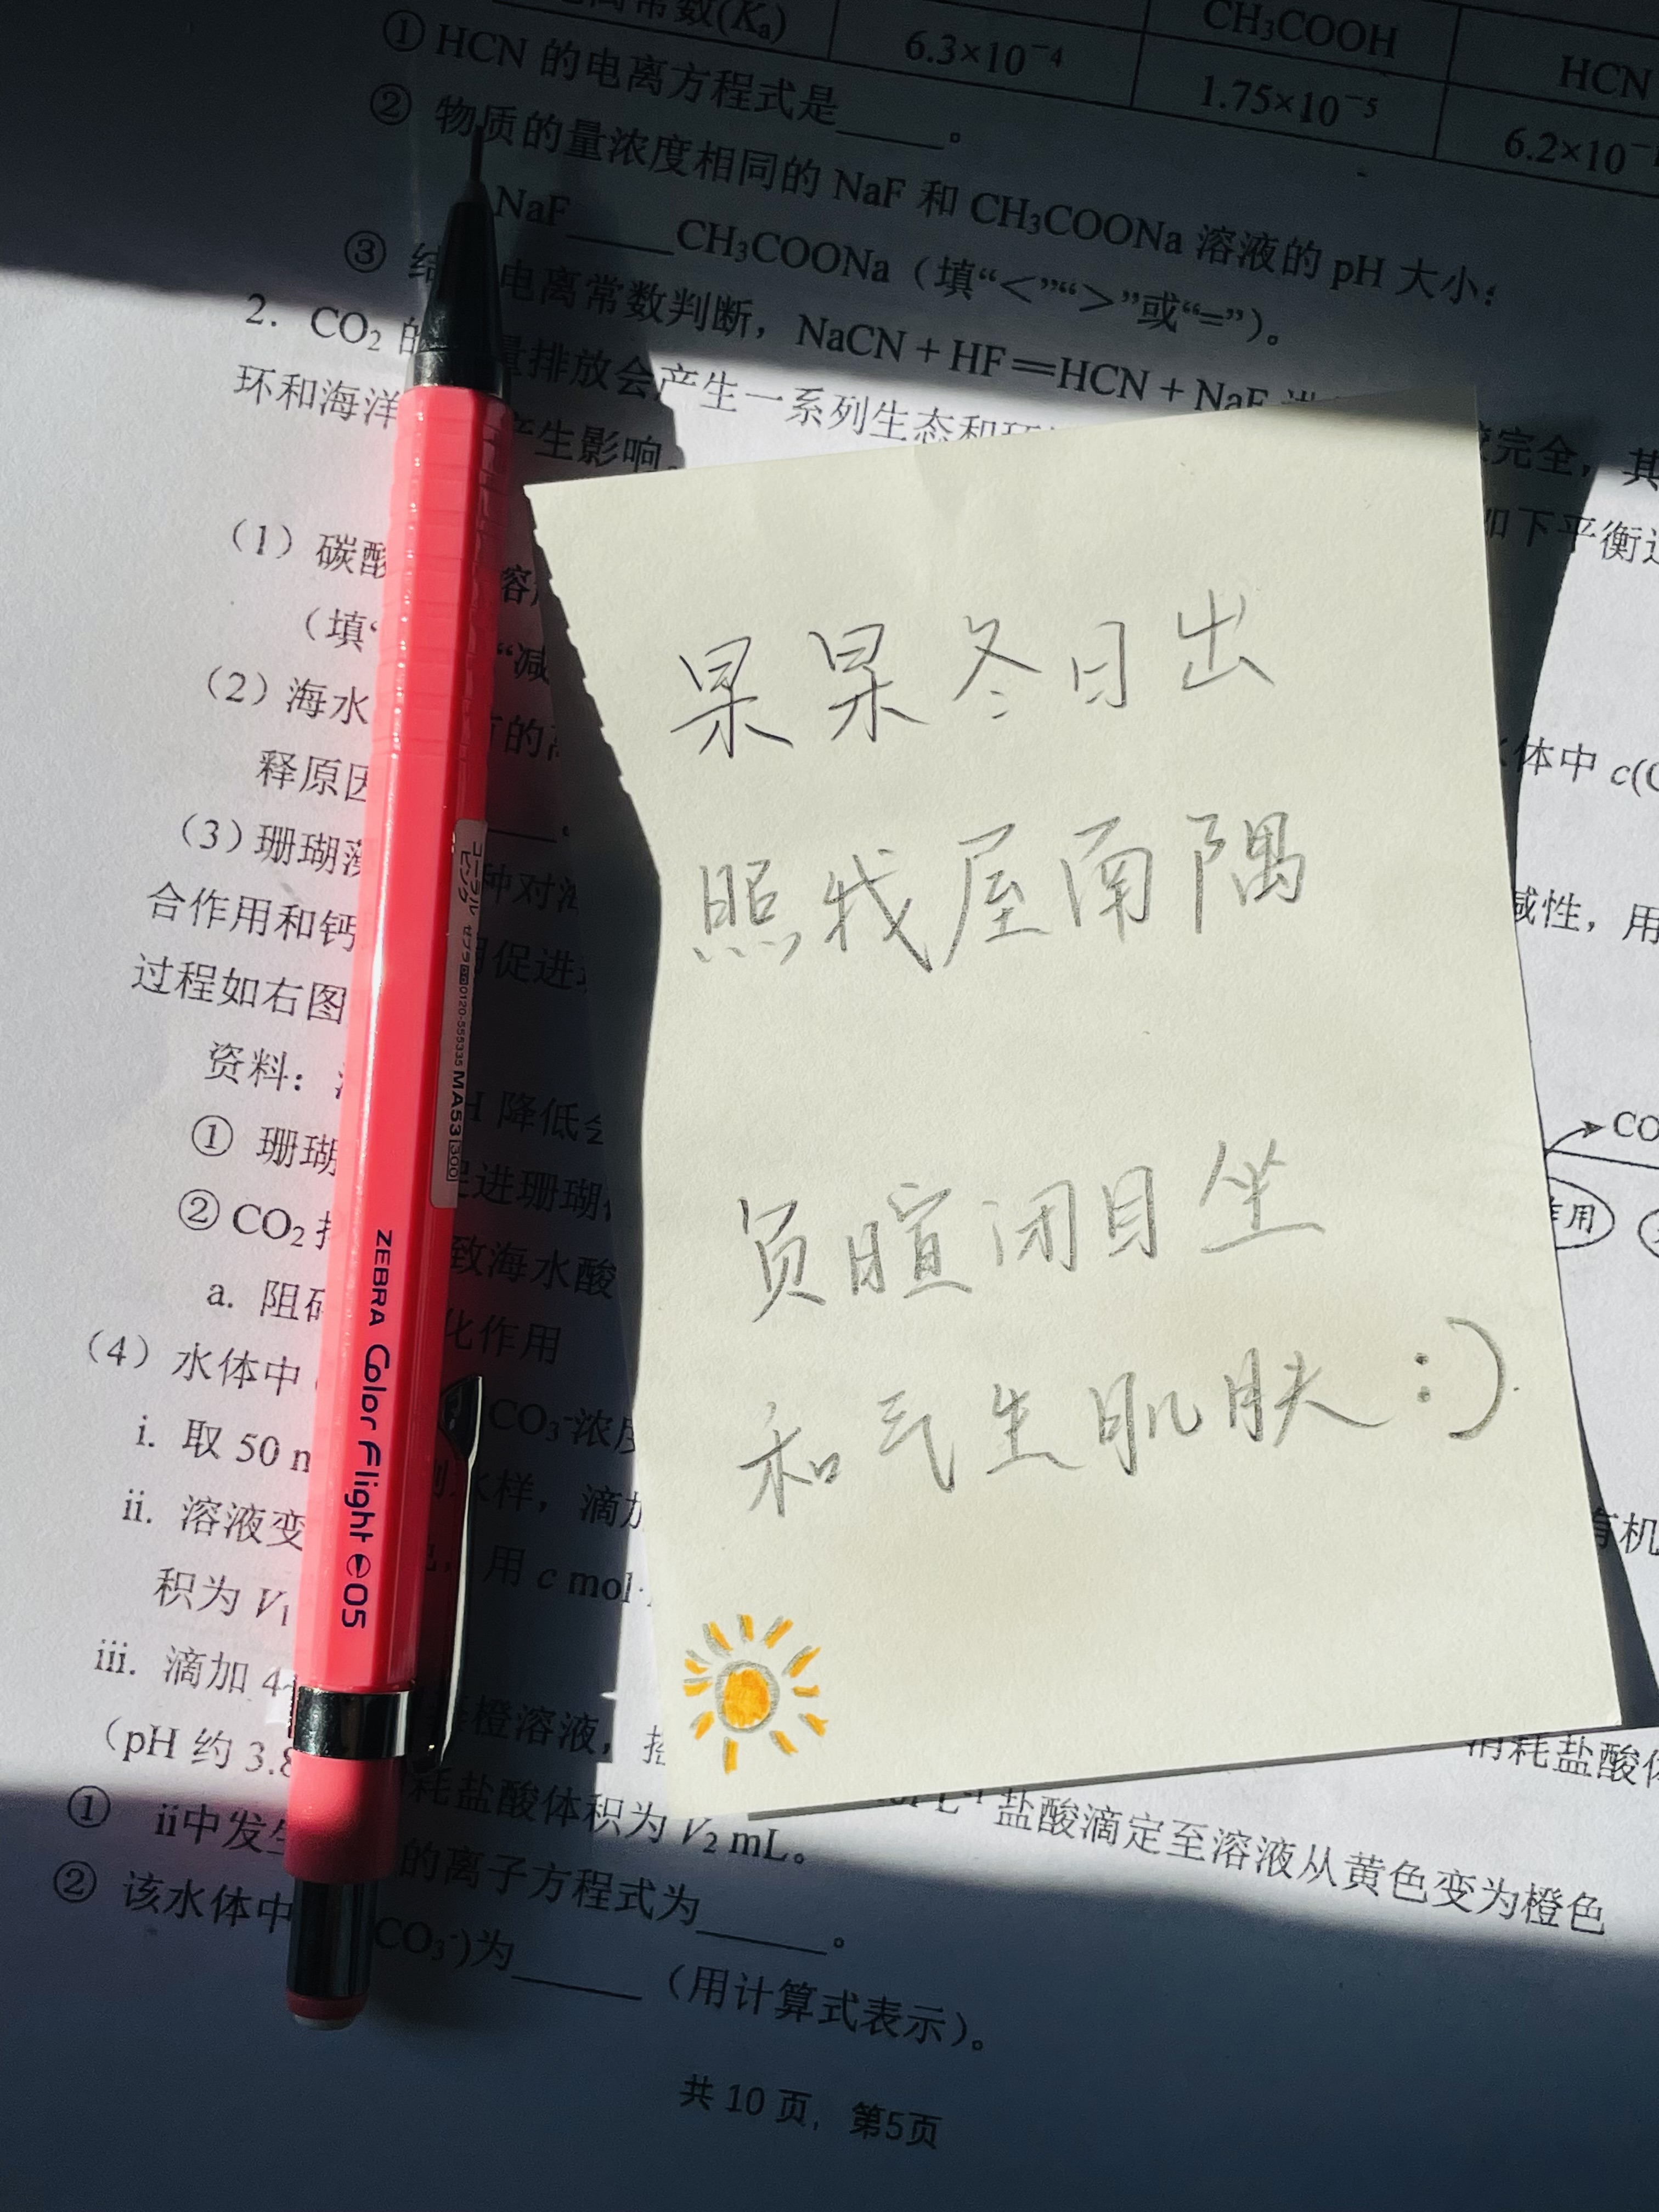 离常数(Kₐ)
6.3×10⁻⁴
CH₃COOH
1.75×10⁻⁵
HCN
6.2×10⁻
① HCN 的电离方程式是____。
② 物质的量浓度相同的 NaF 和 CH₃COONa 溶液的 pH 大小：
NaF____CH₃COONa（填“<”“>”或“=”）。
③ 结 电离常数判断，NaCN + HF＝HCN + NaF 完全，其
2. CO₂ 的 量排放会产生一系列生态和环 如下平衡
环和海洋 产生影响。
（1）碳酸 溶
（填“ “减
（2）海水 的 体中 c(
释原因 ____。
（3）珊瑚藻 种对 碱性，用
合作用和钙 用促进
过程如右图
CO
作用
资料： H 降低会
① 珊瑚 促进珊瑚
② CO₂ 排 致海水酸
a. 阻碍 化作用
（4）水体中 CO₃⁻浓度
i. 取 50 m 水样，滴加 有机
ii. 溶液变 用 c mol·
积为 V₁
iii. 滴加 4 橙溶液， 消耗盐酸体
（pH 约 3.8 耗盐酸体积为 V₂ mL。 L⁻¹ 盐酸滴定至溶液从黄色变为橙色
① ii中发生 的离子方程式为____。
② 该水体中 CO₃⁻)为____（用计算式表示）。
共 10 页，第5页
杲杲冬日出
照我屋南隅
负暄闭目坐
和气生肌肤 :)
コーラルピンク ゼブラ 0120-555335 MA53 300
ZEBRA Color Flight 05